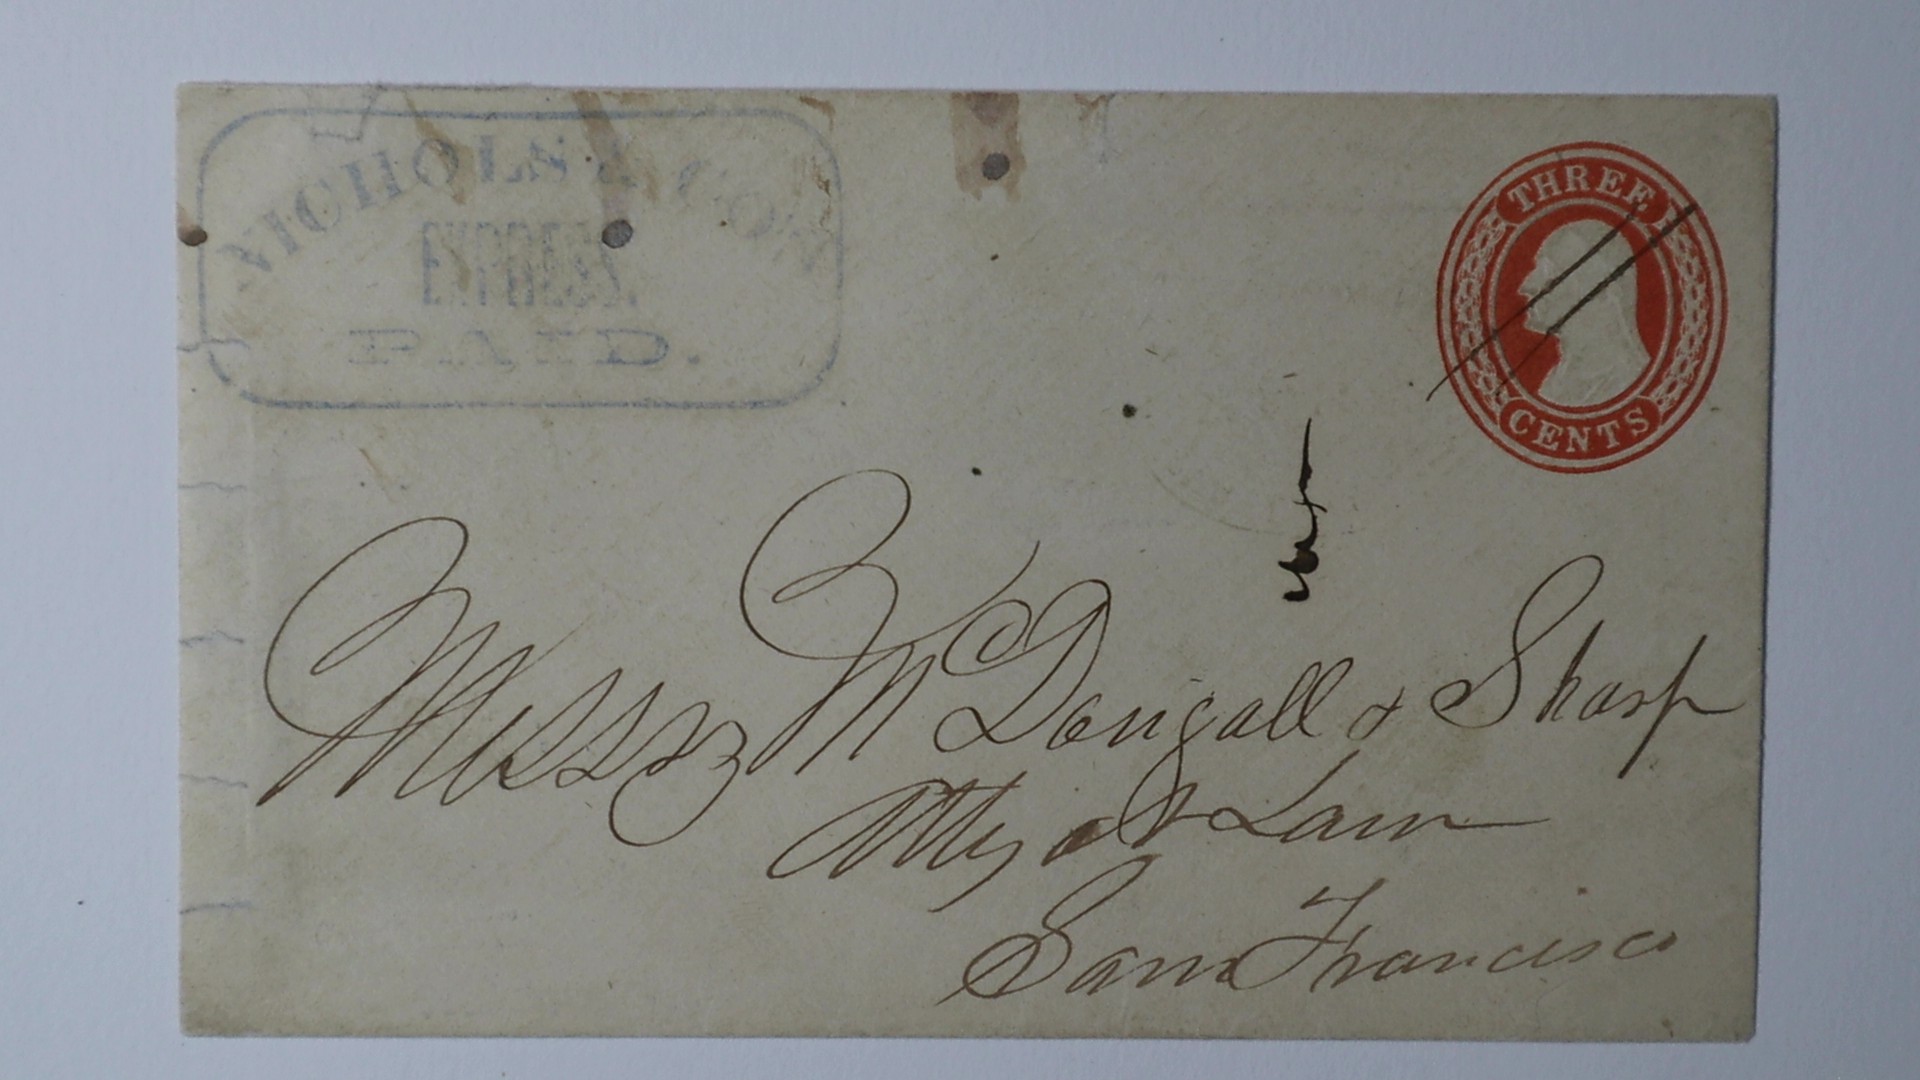 NICHOLS & CO'S
EXPRESS.
PAID.
THREE
CENTS
Messrs McDougall & Sharp
Atty at Law
San Francisco